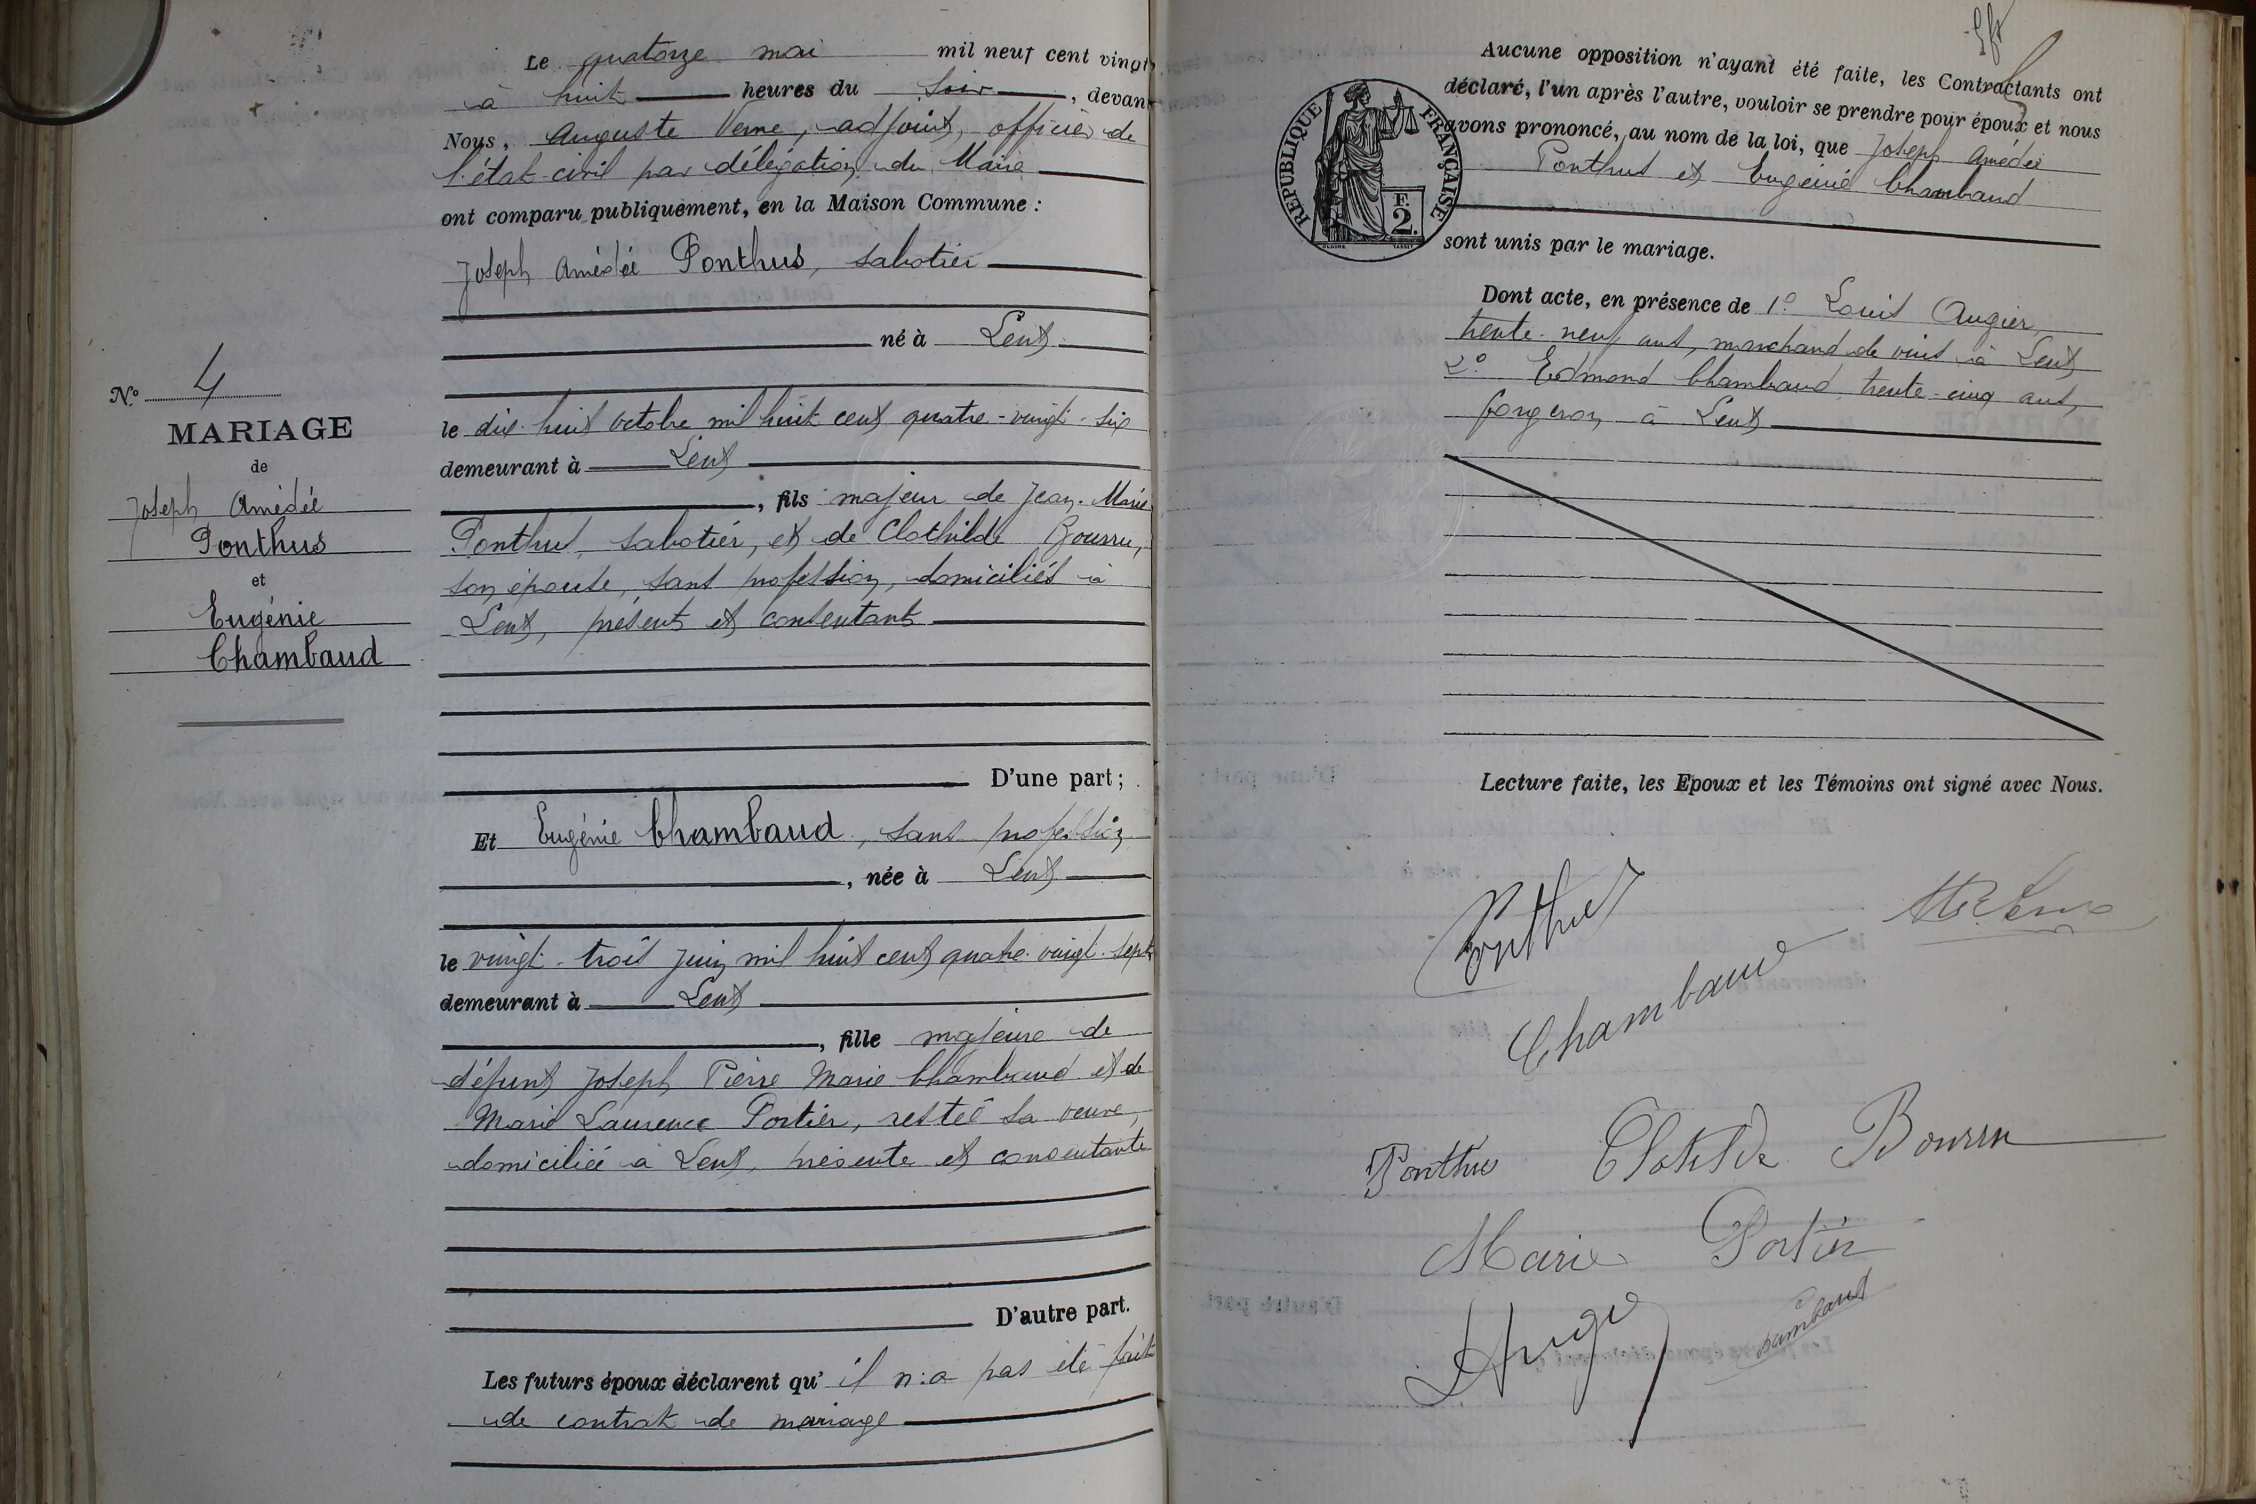 Le quatorze mai mil neuf cent vingt
à huit heures du soir, devant
Nous, Auguste Verne, adjoint, officier de
l'état-civil par délégation du Maire
ont comparu publiquement, en la Maison Commune :
Joseph Amédée Ponthus, sabotier
né à Lent
le dix-huit octobre mil huit cent quatre-vingt-six
demeurant à Lent
, fils majeur de Jean-Marie
Ponthus, sabotier, et de Clothilde Bourru,
son épouse, sans profession, domiciliés à
Lent, présents et consentants
D'une part ;
Et Eugénie Chambaud, sans profession
, née à Lent
le vingt-trois juin mil huit cent quatre-vingt-sept
demeurant à Lent
, fille majeure de
défunt Joseph Pierre Marie Chambaud et de
Marie Laurence Portier, restée sa veuve,
domiciliée à Lent, présente et consentante
D'autre part.
Les futurs époux déclarent qu'il n'a pas été fait
de contrat de mariage
N.º 4
MARIAGE
de
Joseph Amédée
Ponthus
et
Eugénie
Chambaud
Aucune opposition n'ayant été faite, les Contractants ont
déclaré, l'un après l'autre, vouloir se prendre pour époux et nous
avons prononcé, au nom de la loi, que Joseph Amédée
Ponthus et Eugénie Chambaud
sont unis par le mariage.
RÉPUBLIQUE FRANÇAISE
F.
2.
Dont acte, en présence de 1º Louis Augier,
trente-neuf ans, marchand de vins à Lent
2º Edmond Chambaud, trente-cinq ans,
forgeron à Lent
Lecture faite, les Epoux et les Témoins ont signé avec Nous.
Ponthus
Chambaud
Ponthus Clotilde Bourru
Marie Portier
Chambaud